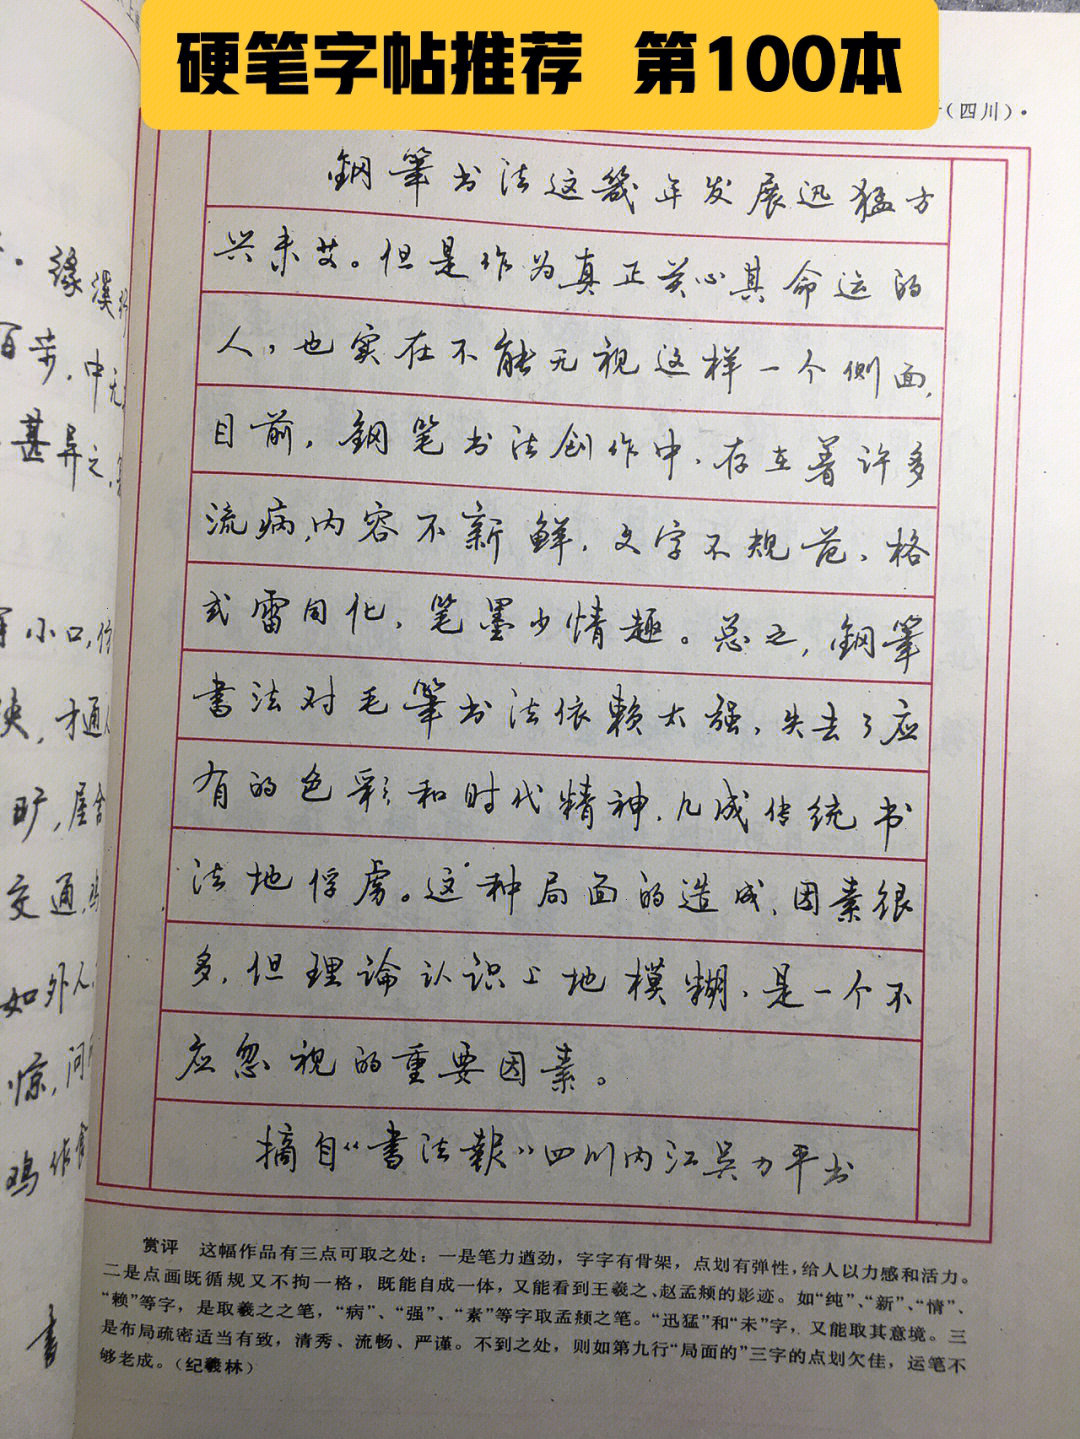 硬笔字帖推荐 第100本
(四川)·
鋼筆书法这幾年发展迅猛方
兴未艾。但是作为真正关心其命运的
人，也实在不能无视这样一个侧面，
目前，鋼笔书法创作中，存在着许多
流病，内容不新鲜，文字不规范，格
式雷同化，笔墨少情趣。总之，鋼筆
書法对毛筆书法依赖太强，失去了应
有的色彩和时代精神，几成传统书
法地俘虏。这种局面的造成，因素很
多，但理論认识上地模糊，是一个不
应忽视的重要因素。
摘自“書法報”四川内江吴力平书
缘溪行
百步，中无
甚异之，
小口，仿
狭，才通人
旷，屋舍
交通，鸡
如外人
惊，问
鸡作食
書
赏评 这幅作品有三点可取之处：一是笔力遒劲，字字有骨架，点划有弹性，给人以力感和活力。
二是点画既循规又不拘一格，既能自成一体，又能看到王羲之、赵孟頫的影迹。如“纯”、“新”、“情”、
“赖”等字，是取羲之之笔，“病”、“强”、“素”等字取孟頫之笔。“迅猛”和“未”字，又能取其意境。三
是布局疏密适当有致，清秀、流畅、严谨。不到之处，则如第九行“局面的”三字的点划欠佳，运笔不
够老成。(纪羲林)